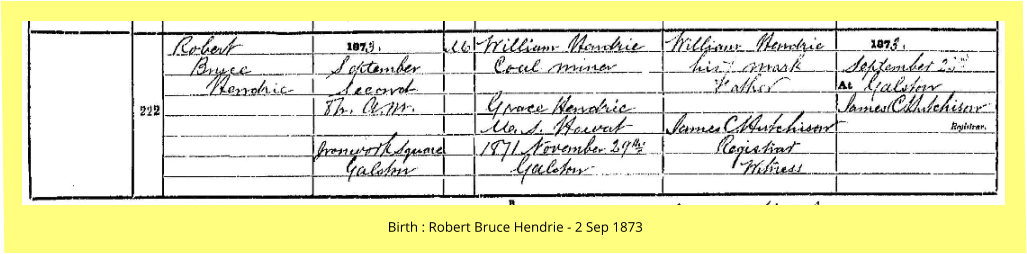 222
Robert
Bruce
Hendrie
1873.
September
Second
7h. A.M.
Ironwork Square
Galston
M.
William Hendrie
Coal miner
Grace Hendrie
M. S. Howat
1871 November 29th
Galston
William Hendrie
his mark
Father
James C Hutchison
Registrar
Witness
1873.
September 23rd
At Galston
James C Hutchison
Registrar.
Birth : Robert Bruce Hendrie - 2 Sep 1873